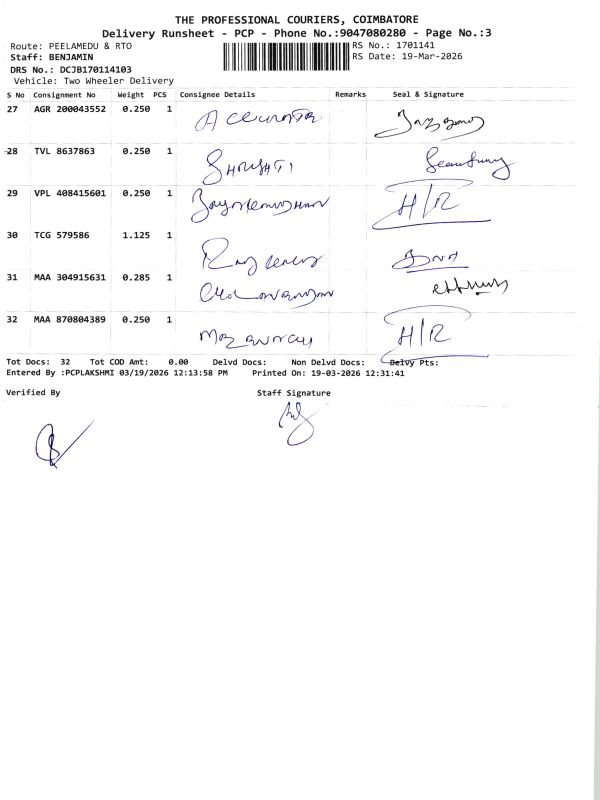 THE PROFESSIONAL COURIERS, COIMBATORE
Delivery Runsheet - PCP - Phone No.:9047080280 - Page No.:3
Route: PEELAMEDU & RTO RS No.: 1701141
Staff: BENJAMIN RS Date: 19-Mar-2026
DRS No.: DCJB170114103
Vehicle: Two Wheeler Delivery
S No Consignment No Weight PCS Consignee Details Remarks Seal & Signature
27 AGR 200043552 0.250 1
28 TVL 8637863 0.250 1
29 VPL 408415601 0.250 1 H/R
30 TCG 579586 1.125 1
31 MAA 304915631 0.285 1
32 MAA 870804389 0.250 1 H/R
Tot Docs: 32 Tot COD Amt: 0.00 Delvd Docs: Non Delvd Docs: Delvy Pts:
Entered By :PCPLAKSHMI 03/19/2026 12:13:58 PM Printed On: 19-03-2026 12:31:41
Verified By Staff Signature